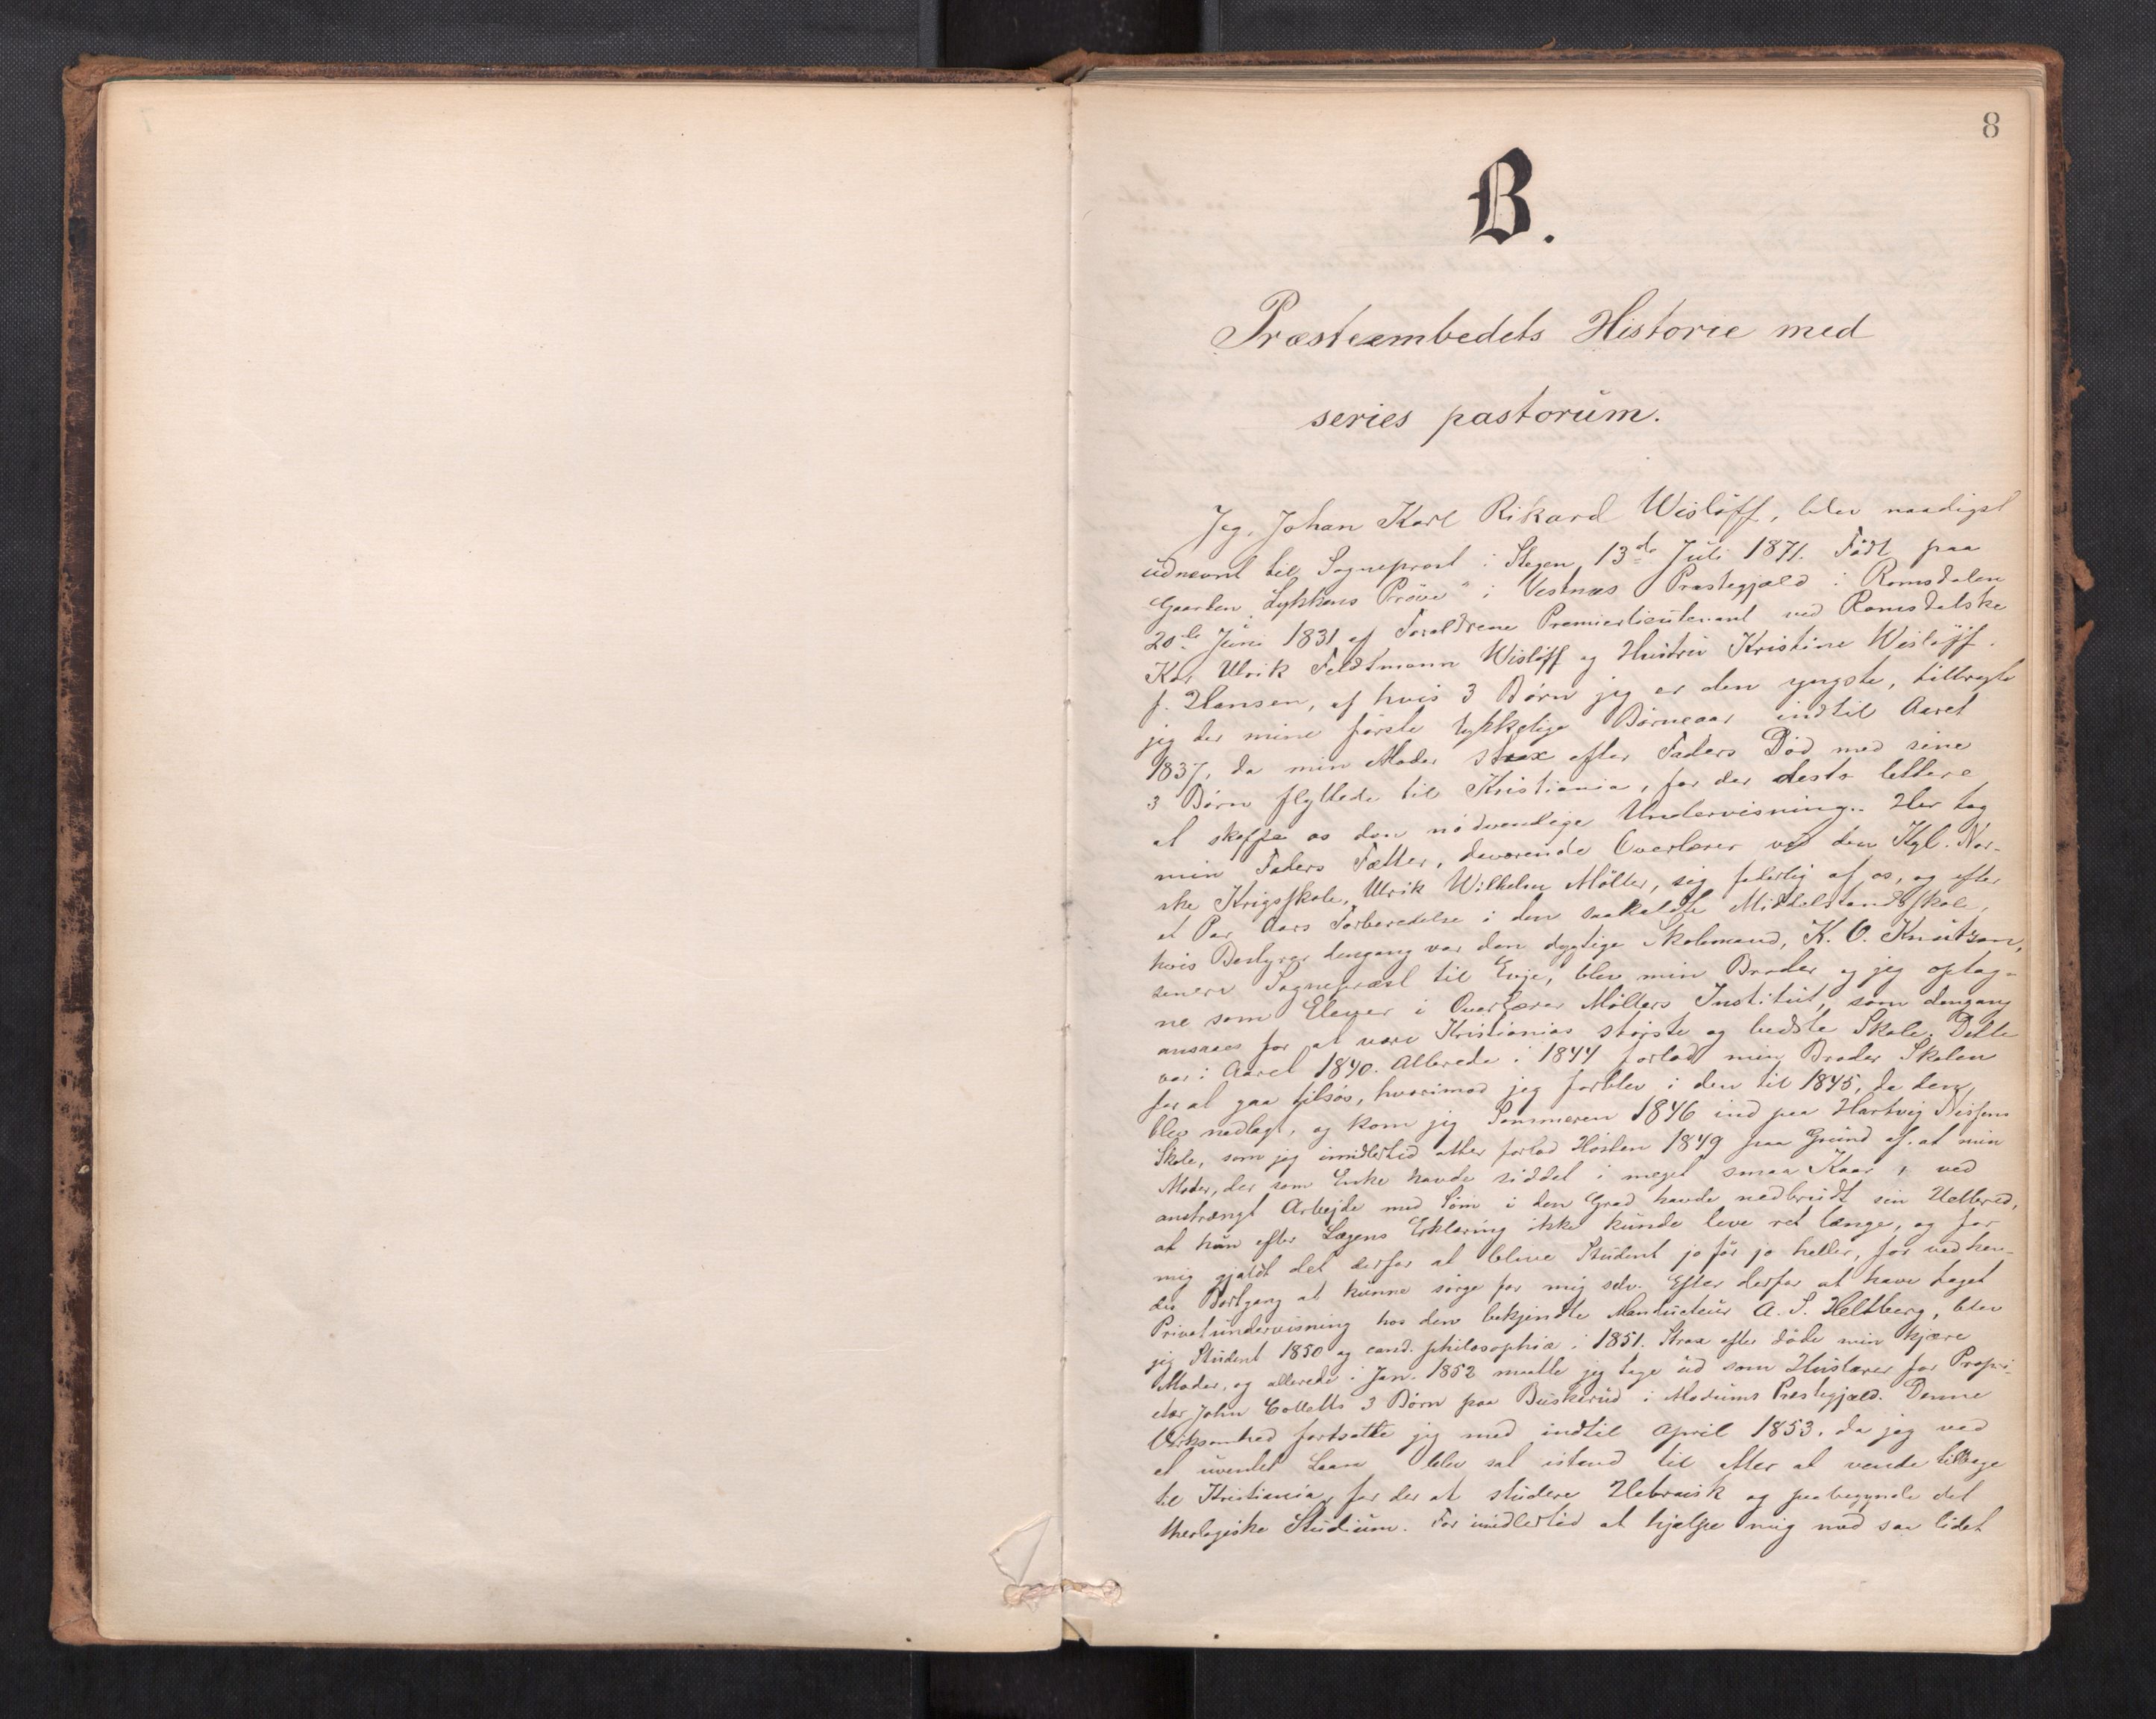 8
B.
Præsteembedets Historie med
series pastorum.
Jeg, Johan Karl Rikard Wisløff, blev naadigst
udnævnt til Sogneprest i Stegen 13de Juli 1871. Født paa
Gaarden "Lykkens Prøve" i Vestnæs Prestegjæld i Romsdalen
20de Juni 1831 af Forældrene Premierlieutenant ved Romsdalske
Kor. Ulrik Feldtmann Wisløff og Hustru Kristine Wisløff
f. Hansen, af hvis 3 Børn jeg er den yngste, tilbragte
jeg der mine første lykkelige Børneaar indtil Aaret
1837, da min Moder strax efter Faders Død med sine
3 Børn flyttede til Kristiania, for der desto lettere
at skaffe os den nødvendige Undervisning. Her tog
min Faders Fætter, daværende Overlærer ved den Kgl. Nor-
ske Krigsskole, Ulrik Wilhelm Møller, sig faderlig af os, og efter
et Par Aars Forberedelse i den saakaldte Middelstandsskole,
hvis Bestyrer dengang var den dygtige Skolemand, K. O. Knutzon,
senere Sogneprest til Evje, blev min Broder og jeg optag-
ne som Elever i Overlærer Møllers Institut, som dengang
ansaaes for at være Kristianias største og bedste Skole. Dette
var i Aaret 1840. Allerede i 1844 forlod min Broder Skolen
for at gaa tilsøs, hvorimod jeg forblev i den til 1845, da den
blev nedlagt, og kom jeg Sommeren 1846 ind paa Hartvig Nissens
Skole, som jeg imidlertid atter forlod Høsten 1849 paa Grund af, at min
Moder, der som Enke havde siddet i meget smaa Kaar, ved
anstrængt Arbejde med Søm i den Grad havde nedbrudt sin Helbred,
at hun efter Lægens Erklæring ikke kunde leve ret længe, og for
mig gjaldt det derfor at blive Student jo før jo heller, for ved hen-
des Bortgang at kunne sørge for mig selv. Efter derfor at have taget
Privatundervisning hos den bekjendte Manuducteur A. S. Heltberg, blev
jeg Student 1850 og cand. philosophiæ i 1851. Strax efter døde min kjære
Moder, og allerede i Jan. 1852 maatte jeg tage ud som Huslærer for Propri-
etær John Colletts 3 Børn paa Buskerud i Modums Prestegjæld. Denne
Virksomhed fortsatte jeg med indtil April 1853, da jeg ved
et uventet Laan blev sat istand til atter at vende tilbage
til Kristiania, for der at studere Hebraisk og paabegynde det
theologiske Studium. For imidlertid at hjælpe mig med saa lidet